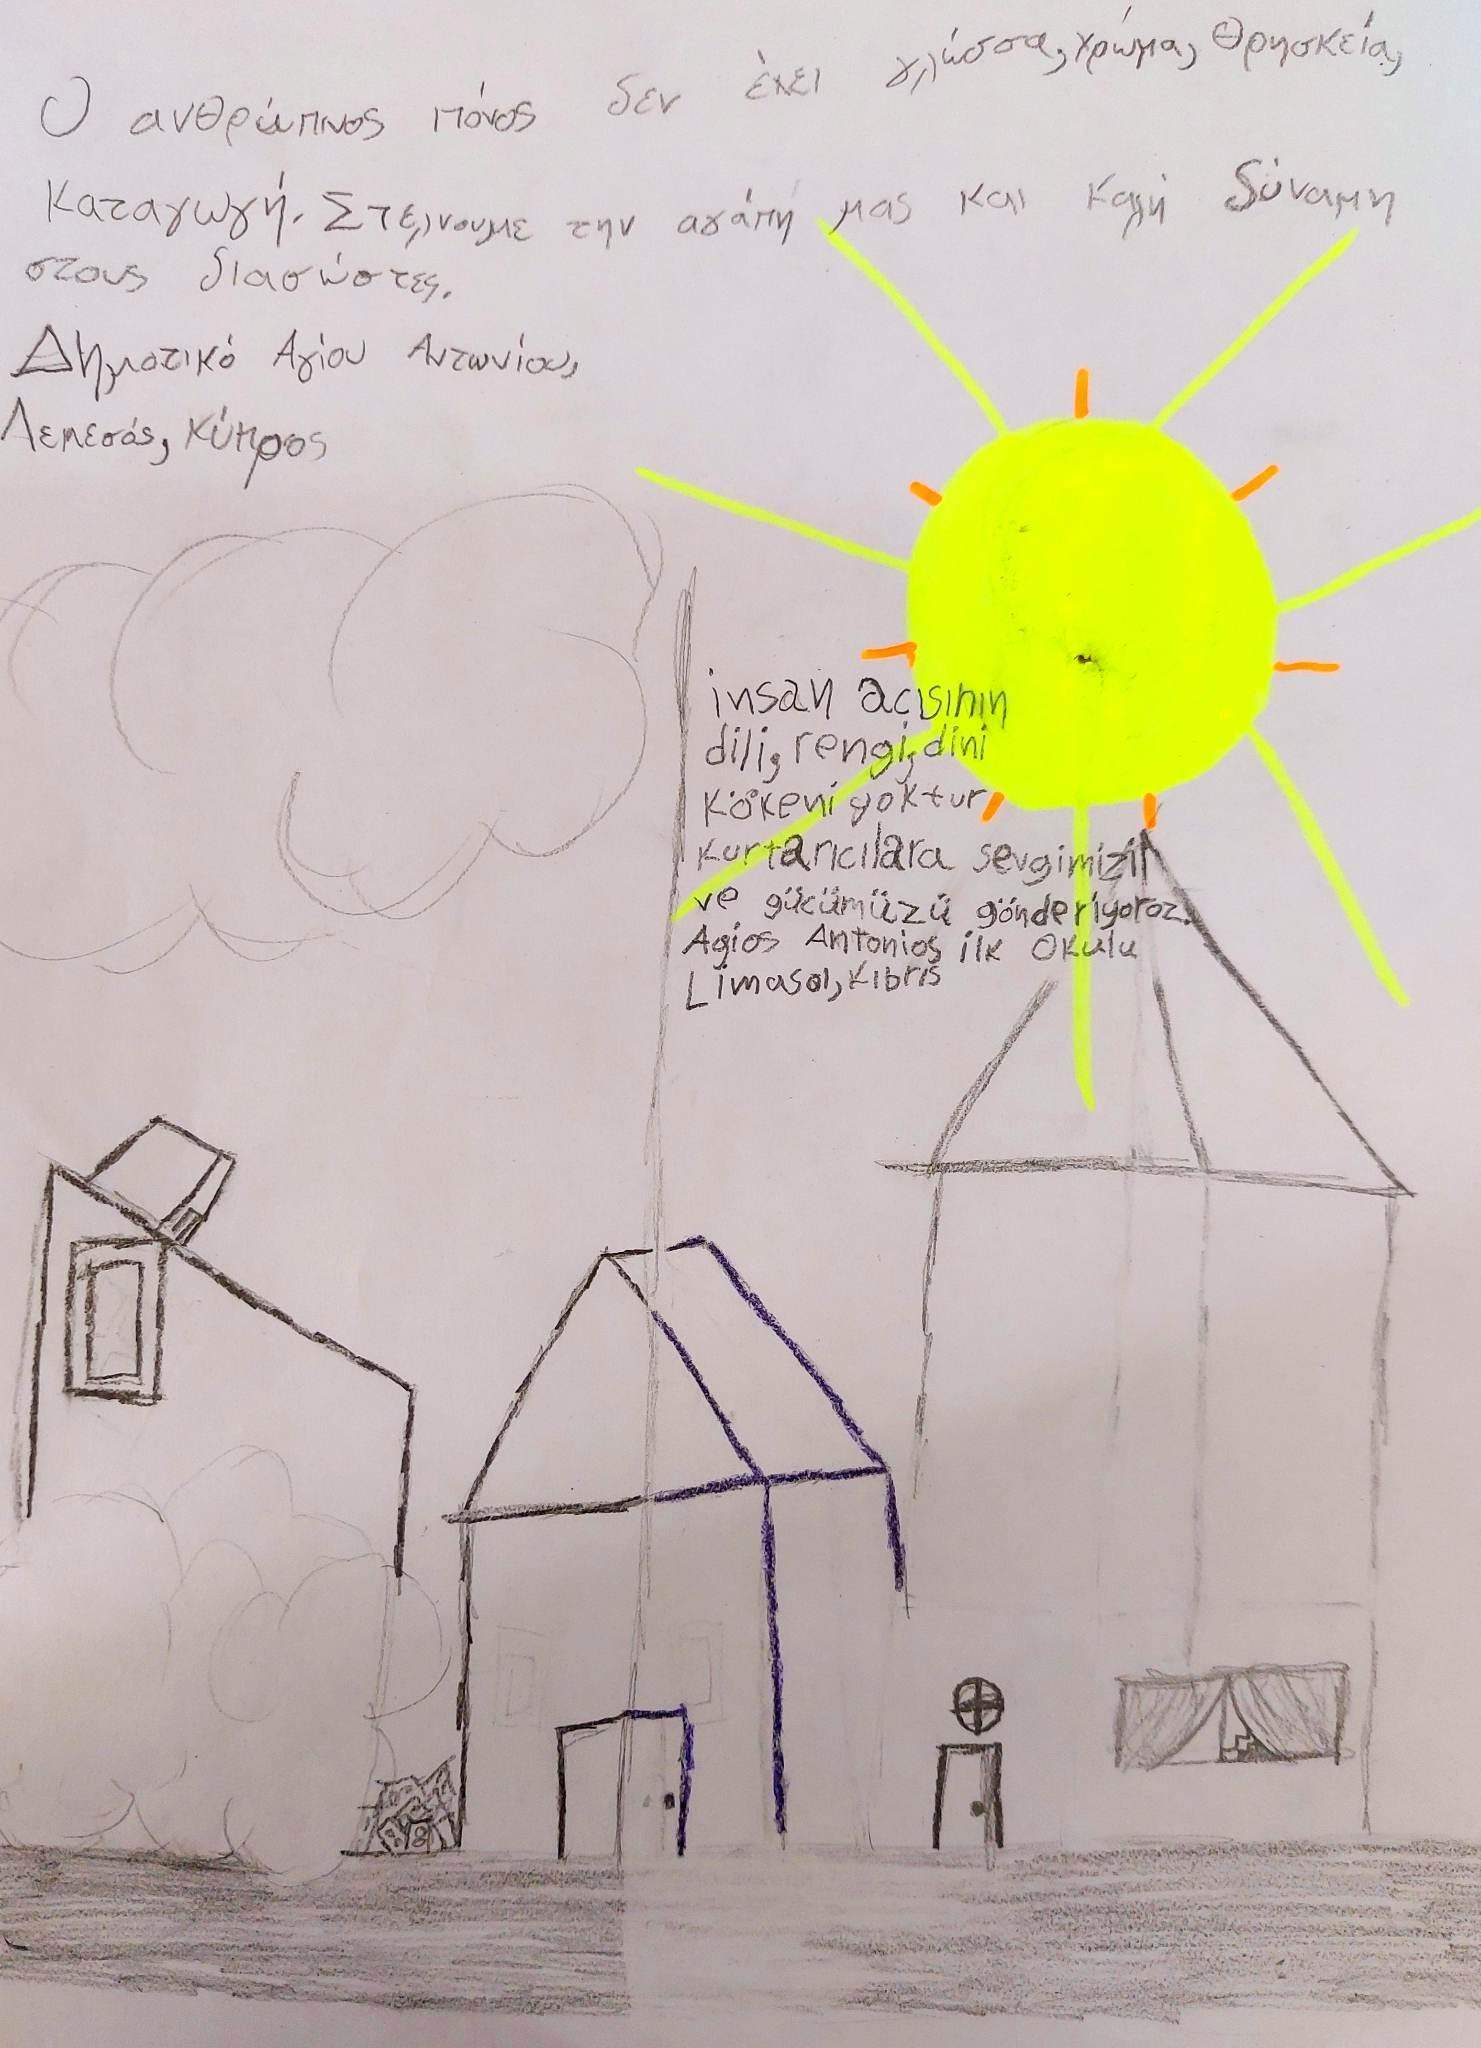 Ο ανθρώπινος πόνος δεν έχει γλώσσα, χρώμα, Θρησκεία,
Καταγωγή. Στέλνουμε την αγάπη μας και καλή δύναμη
στους διασώστες.
Δημοτικό Αγίου Αντωνίου,
Λεμεσός, Κύπρος
insan acısının
dili, rengi, dini
kökeni yoktur
kurtarıcılara sevgimizi
ve gücümüzü gönderiyoroz.
Agios Antonios ilk Okulu
Limasol, Kıbrıs